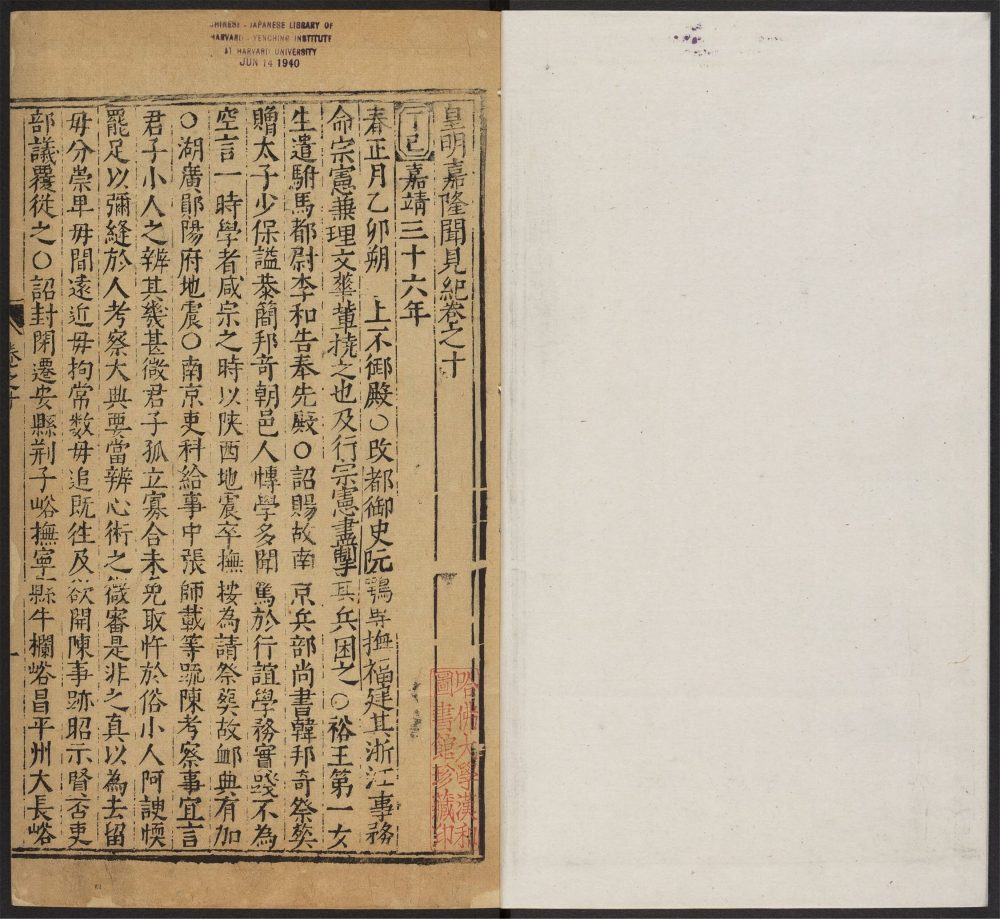 CHINESE - JAPANESE LIBRARY OF
HARVARD - YENCHING INSTITUTE
AT HARVARD UNIVERSITY
JUN 14 1940
皇明嘉隆聞見紀卷之十
丁巳嘉靖三十六年
春正月乙卯朔　上不御殿○改都御史阮鶚專撫福建其浙江事務
命宗憲兼理文華輩撓之也及行宗憲盡掣其兵困之○裕王第一女
生遣駙馬都尉李和告奉先殿○詔賜故南京兵部尚書韓邦奇祭葬
贈太子少保謚恭簡邦奇朝邑人愽學多聞篤於行誼學務實踐不為
空言一時學者咸宗之時以陕西地震卒撫按為請祭葬故卹典有加
○湖廣鄖陽府地震○南京吏科給事中張師載等疏陳考察事宜言
君子小人之辨其幾甚微君子孤立寡合未免取忤於俗小人阿諛愞
罷足以彌縫於人考察大典要當辨心術之微審是非之真以為去留
毋分崇卑毋間遠近毋拘常數毋追既徃及欲開陳事跡昭示賢否吏
部議覆從之○詔封閉遷安縣荆子峪撫寧縣牛欄峪昌平州大長峪
卷之十
一
哈佛大學漢和
圖書館珍藏印